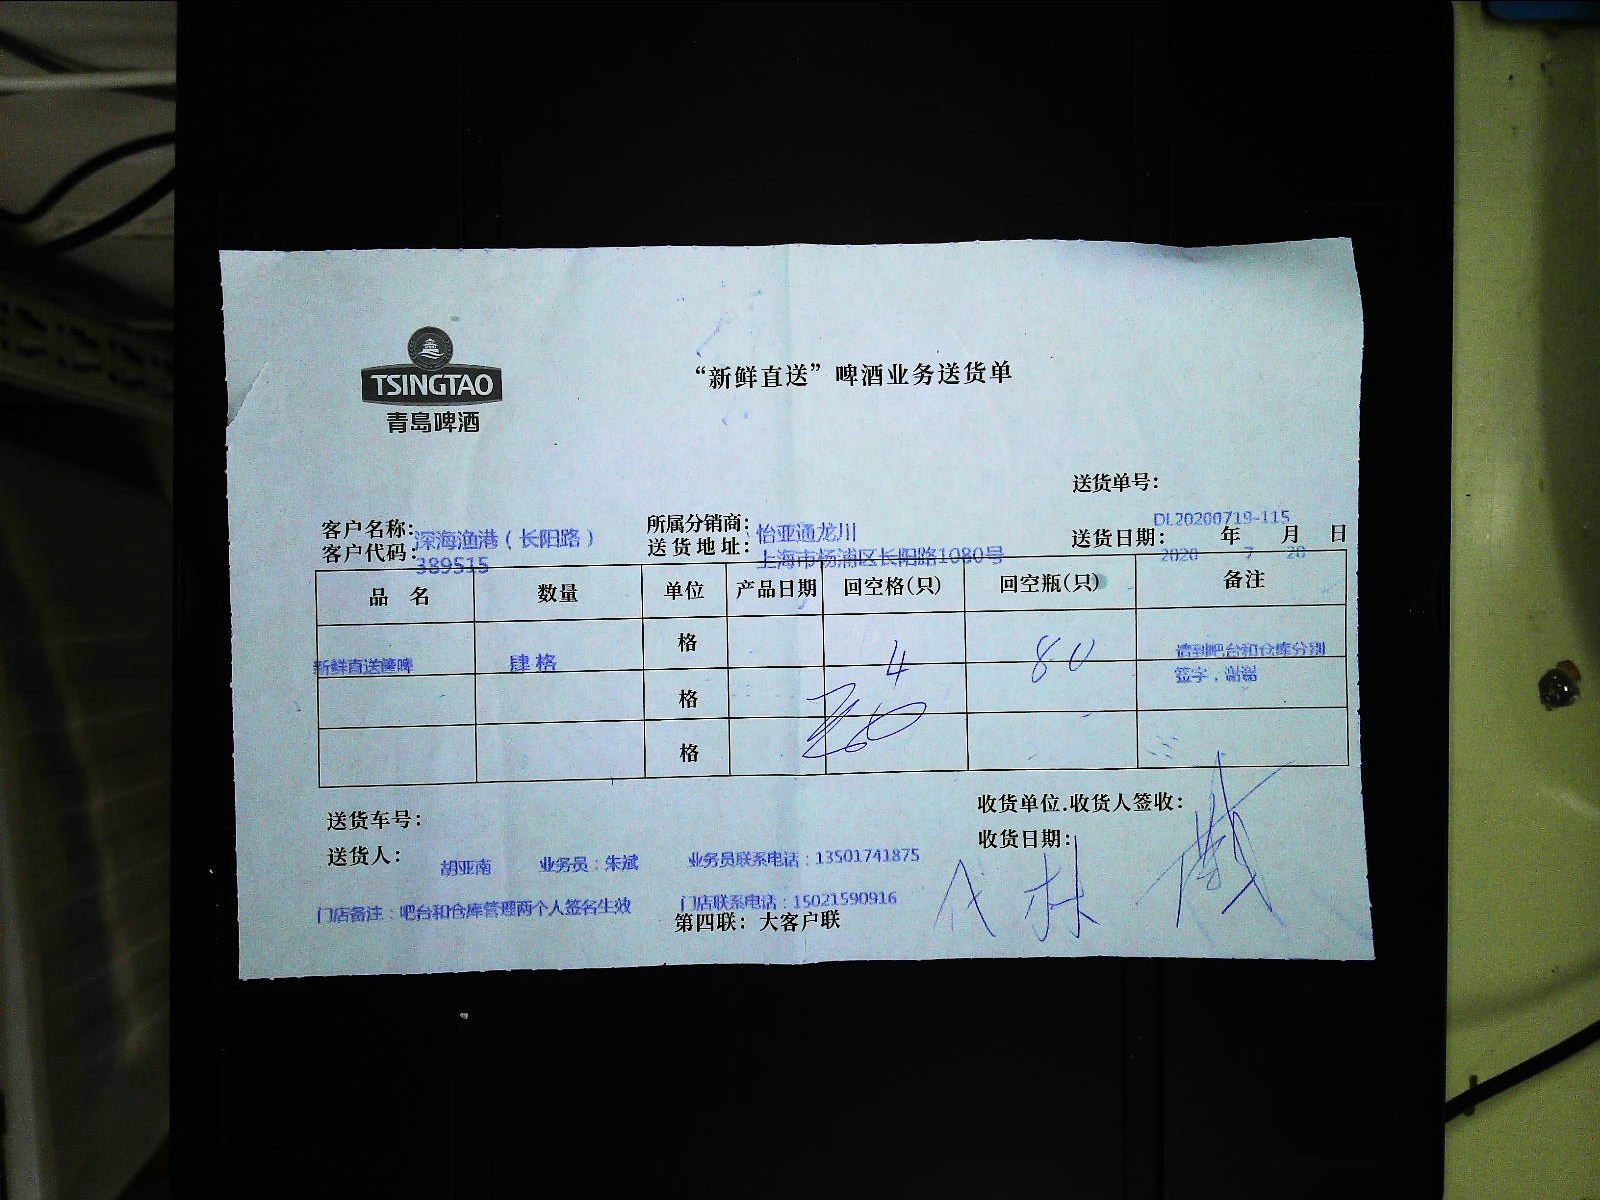 TSINGTAO
青島啤酒
“新鲜直送”啤酒业务送货单
送货单号：
DL20200719-115
客户名称：深海渔港（长阳路） 所属分销商：怡亚通龙川
客户代码：389515 送货地址：上海市杨浦区长阳路1080号 送货日期：2020年7月20日
品 名 数量 单位 产品日期 回空格(只) 回空瓶(只) 备注
新鲜直送箍啤 肆格 格 4 80 请到吧台和仓库分别
格 签字，谢谢
格
送货车号： 收货单位.收货人签收：
送货人：胡亚南 业务员：朱斌 业务员联系电话：13501741875 收货日期：
门店备注：吧台和仓库管理两个人签名生效 门店联系电话：15021590916
第四联：大客户联